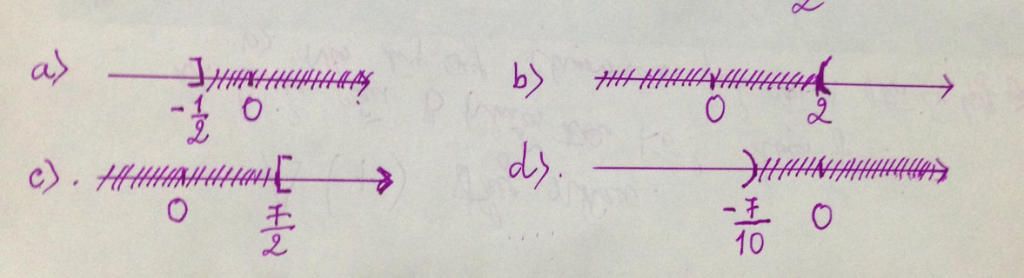 2
a) ] -1/2 0
b) 0 ( 2
c). 0 [ 7/2
d). ) -7/10 0